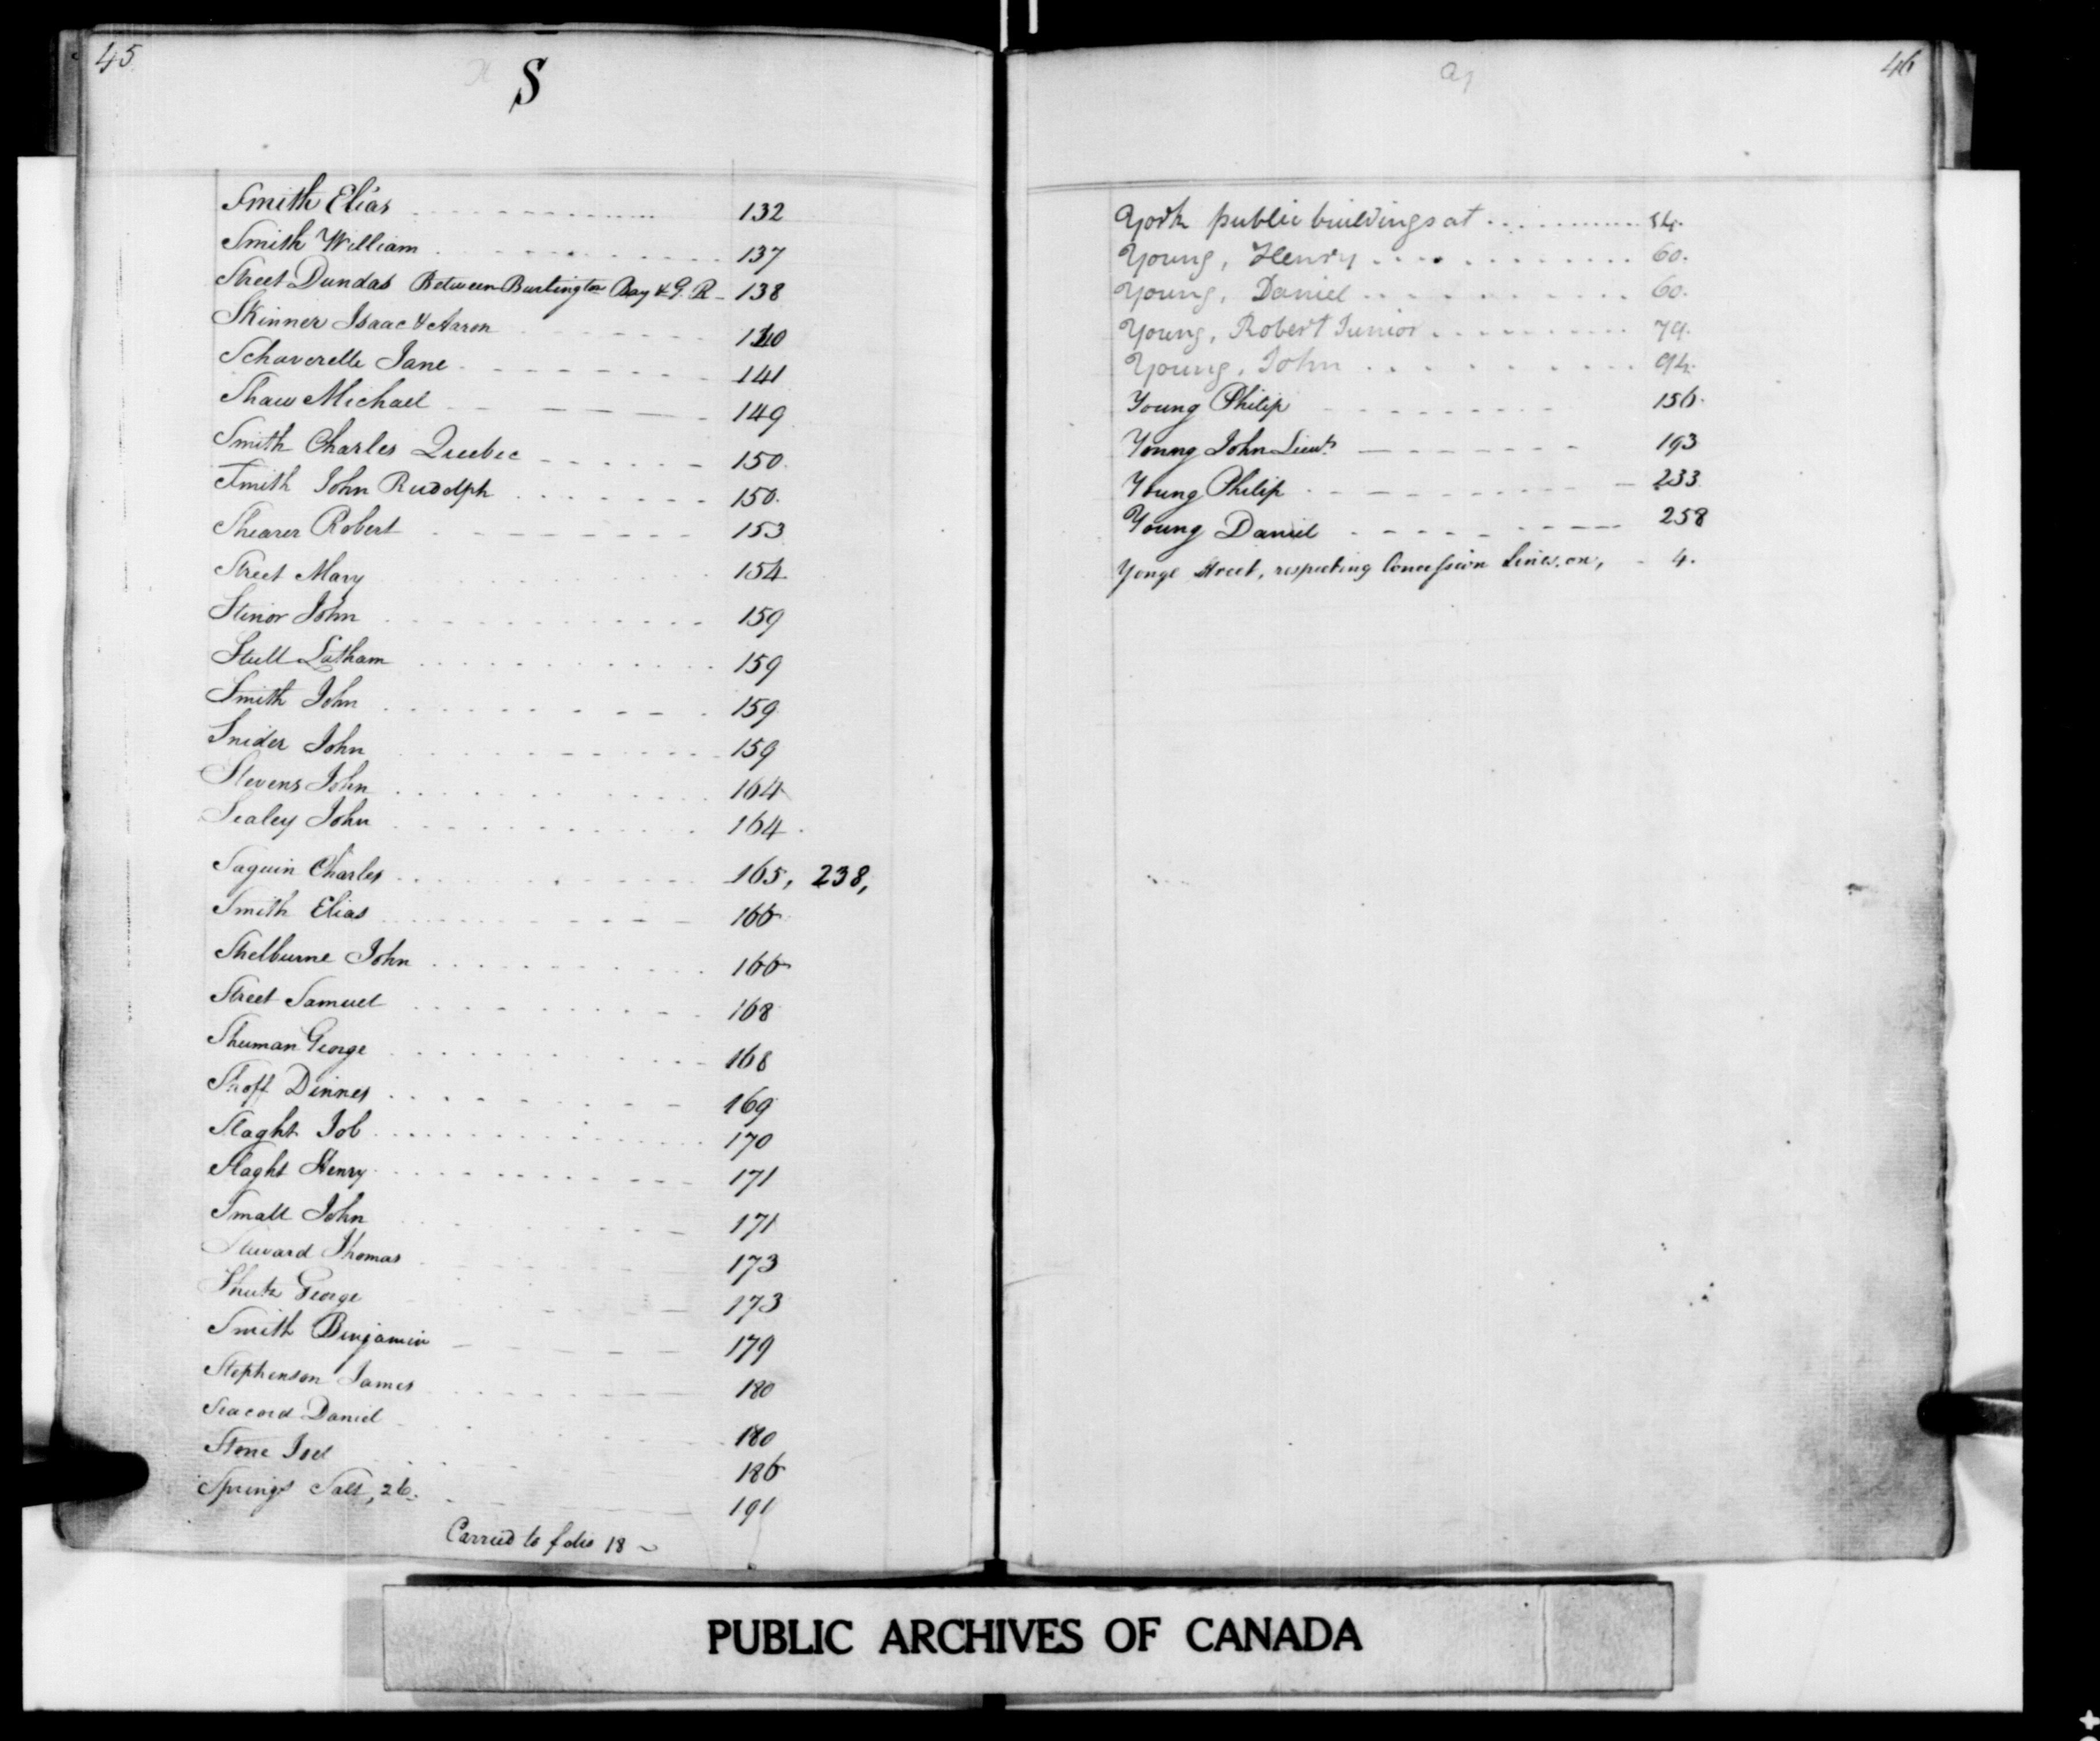 45
S
Smith Elias 132
Smith William 137
Street Dundas Between Burlington Bay & G. R 138
Skinner Isaac & Aaron 140
Schaverelle Jane 141
Shaw Michael 149
Smith Charles Quebec 150
Smith John Rudolph 150
Shearer Robert 153
Street Mary 154
Stinor John 159
Stull Latham 159
Smith John 159
Snider John 159
Stevens John 164
Sealey John 164
Saguin Charles 165, 238,
Smith Elias 166
Shelburne John 166
Street Samuel 168
Shuman George 168
Shoff Dinnes 169
Slaght Job 170
Slaght Henry 171
Small John 171
Steward Thomas 173
Shutz George 173
Smith Benjamin 179
Stephenson James 180
Seacord Daniel 180
Stone Joel 186
Springs Salt, 26. 191
Carried to folio 18
46
York public buildings at 54.
Young, Henry 60.
Young, Daniel 60.
Young, Robert Junior 79.
Young, John 94.
Young Philip 156.
Young John Lieut. 193
Young Philip 233
Young Daniel 258
Yonge Street, respecting Concession Lines on, 4.
PUBLIC ARCHIVES OF CANADA